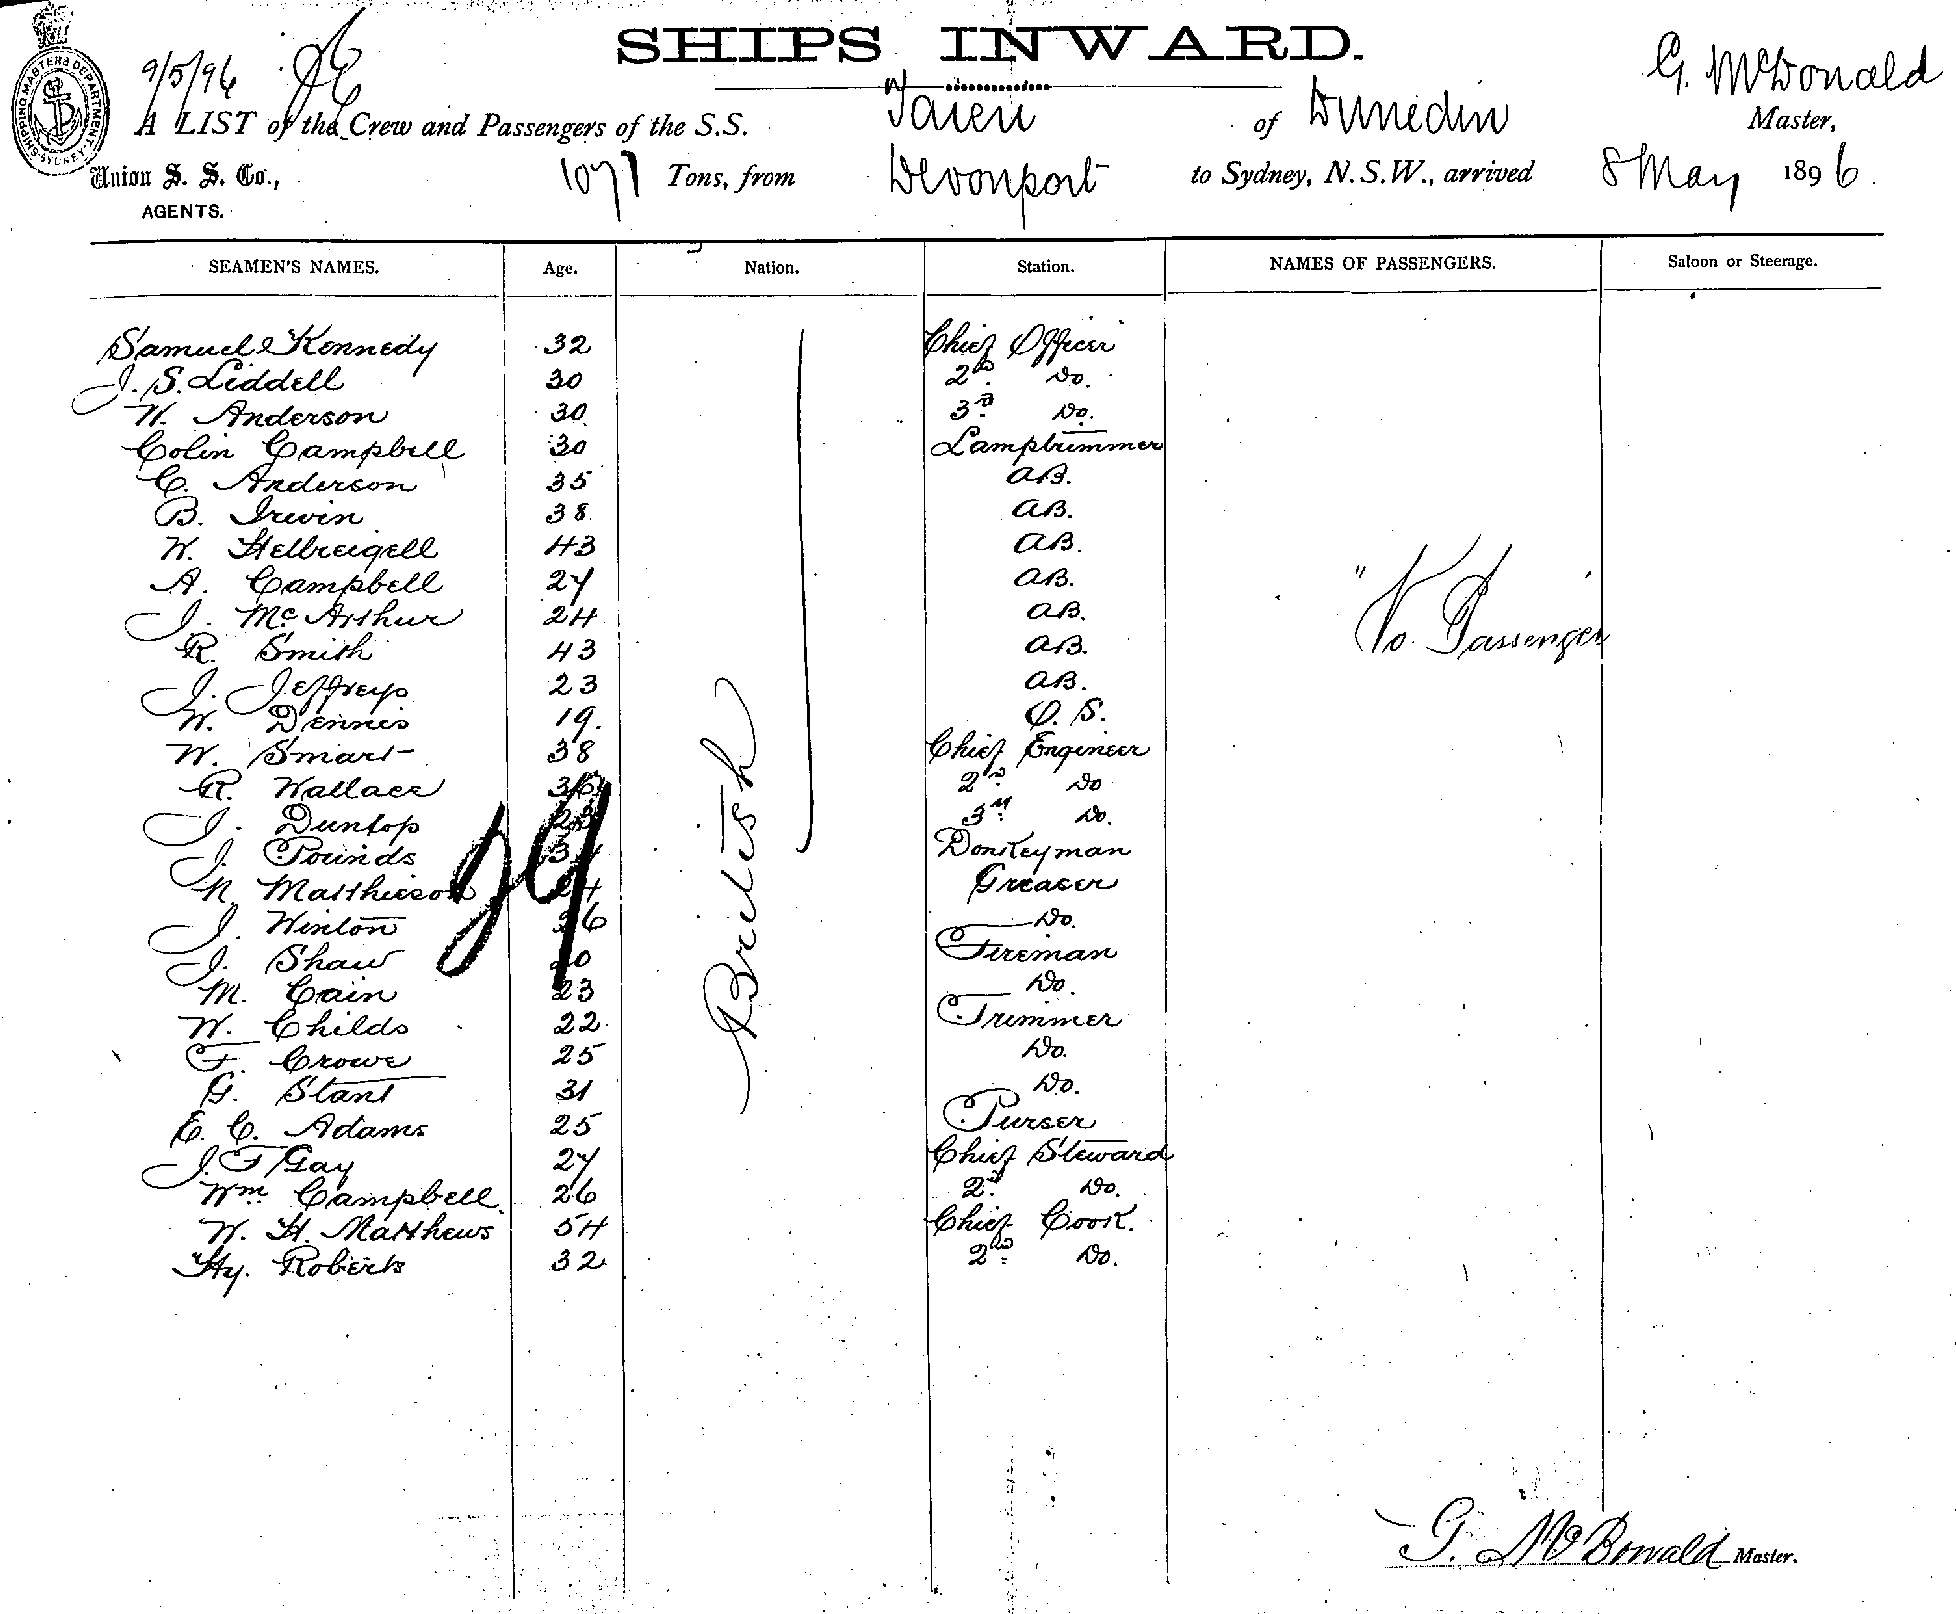 SHIPS INWARD.
9/5/96
G. McDonald
A LIST of the Crew and Passengers of the S.S. Taieri of Dunedin Master,
Union S. S. Co., 1071 Tons, from Devonport to Sydney, N.S.W., arrived 8 May 1896.
AGENTS.
SHIPPING MASTERS DEPARTMENT SYDNEY
SEAMEN'S NAMES. Age. Nation. Station. NAMES OF PASSENGERS. Saloon or Steerage.
Samuel Kennedy 32 Chief Officer
J. S. Liddell 30 2nd Do.
W. Anderson 30 3rd Do.
Colin Campbell 30 Lamptrimmer
C. Anderson 35 AB.
B. Irwin 38 AB.
W. Helbreigell 43 AB.
A. Campbell 27 AB.
J. McArthur 24 AB.
R. Smith 43 AB.
J. Jeffreys 23 AB.
W. Dennis 19. O.S.
W. Smart 38 Chief Engineer
R. Wallace 2nd Do
J. Dunlop 3rd Do.
J. Pounds Donkeyman
N. Matthieson 24 Greaser
J. Winton Do.
J. Shaw Fireman
M. Cain 23 Do.
W. Childs 22 Trimmer
F. Crowe 25 Do.
G. Stant 31 Do.
E. C. Adams 25 Purser
J. F Gay 27 Chief Steward
Wm Campbell. 26 2nd Do.
W. H. Matthews 54 Chief Cook.
Hy. Roberts 32 2nd Do.
British
29
"No Passengers
G. McDonald Master.